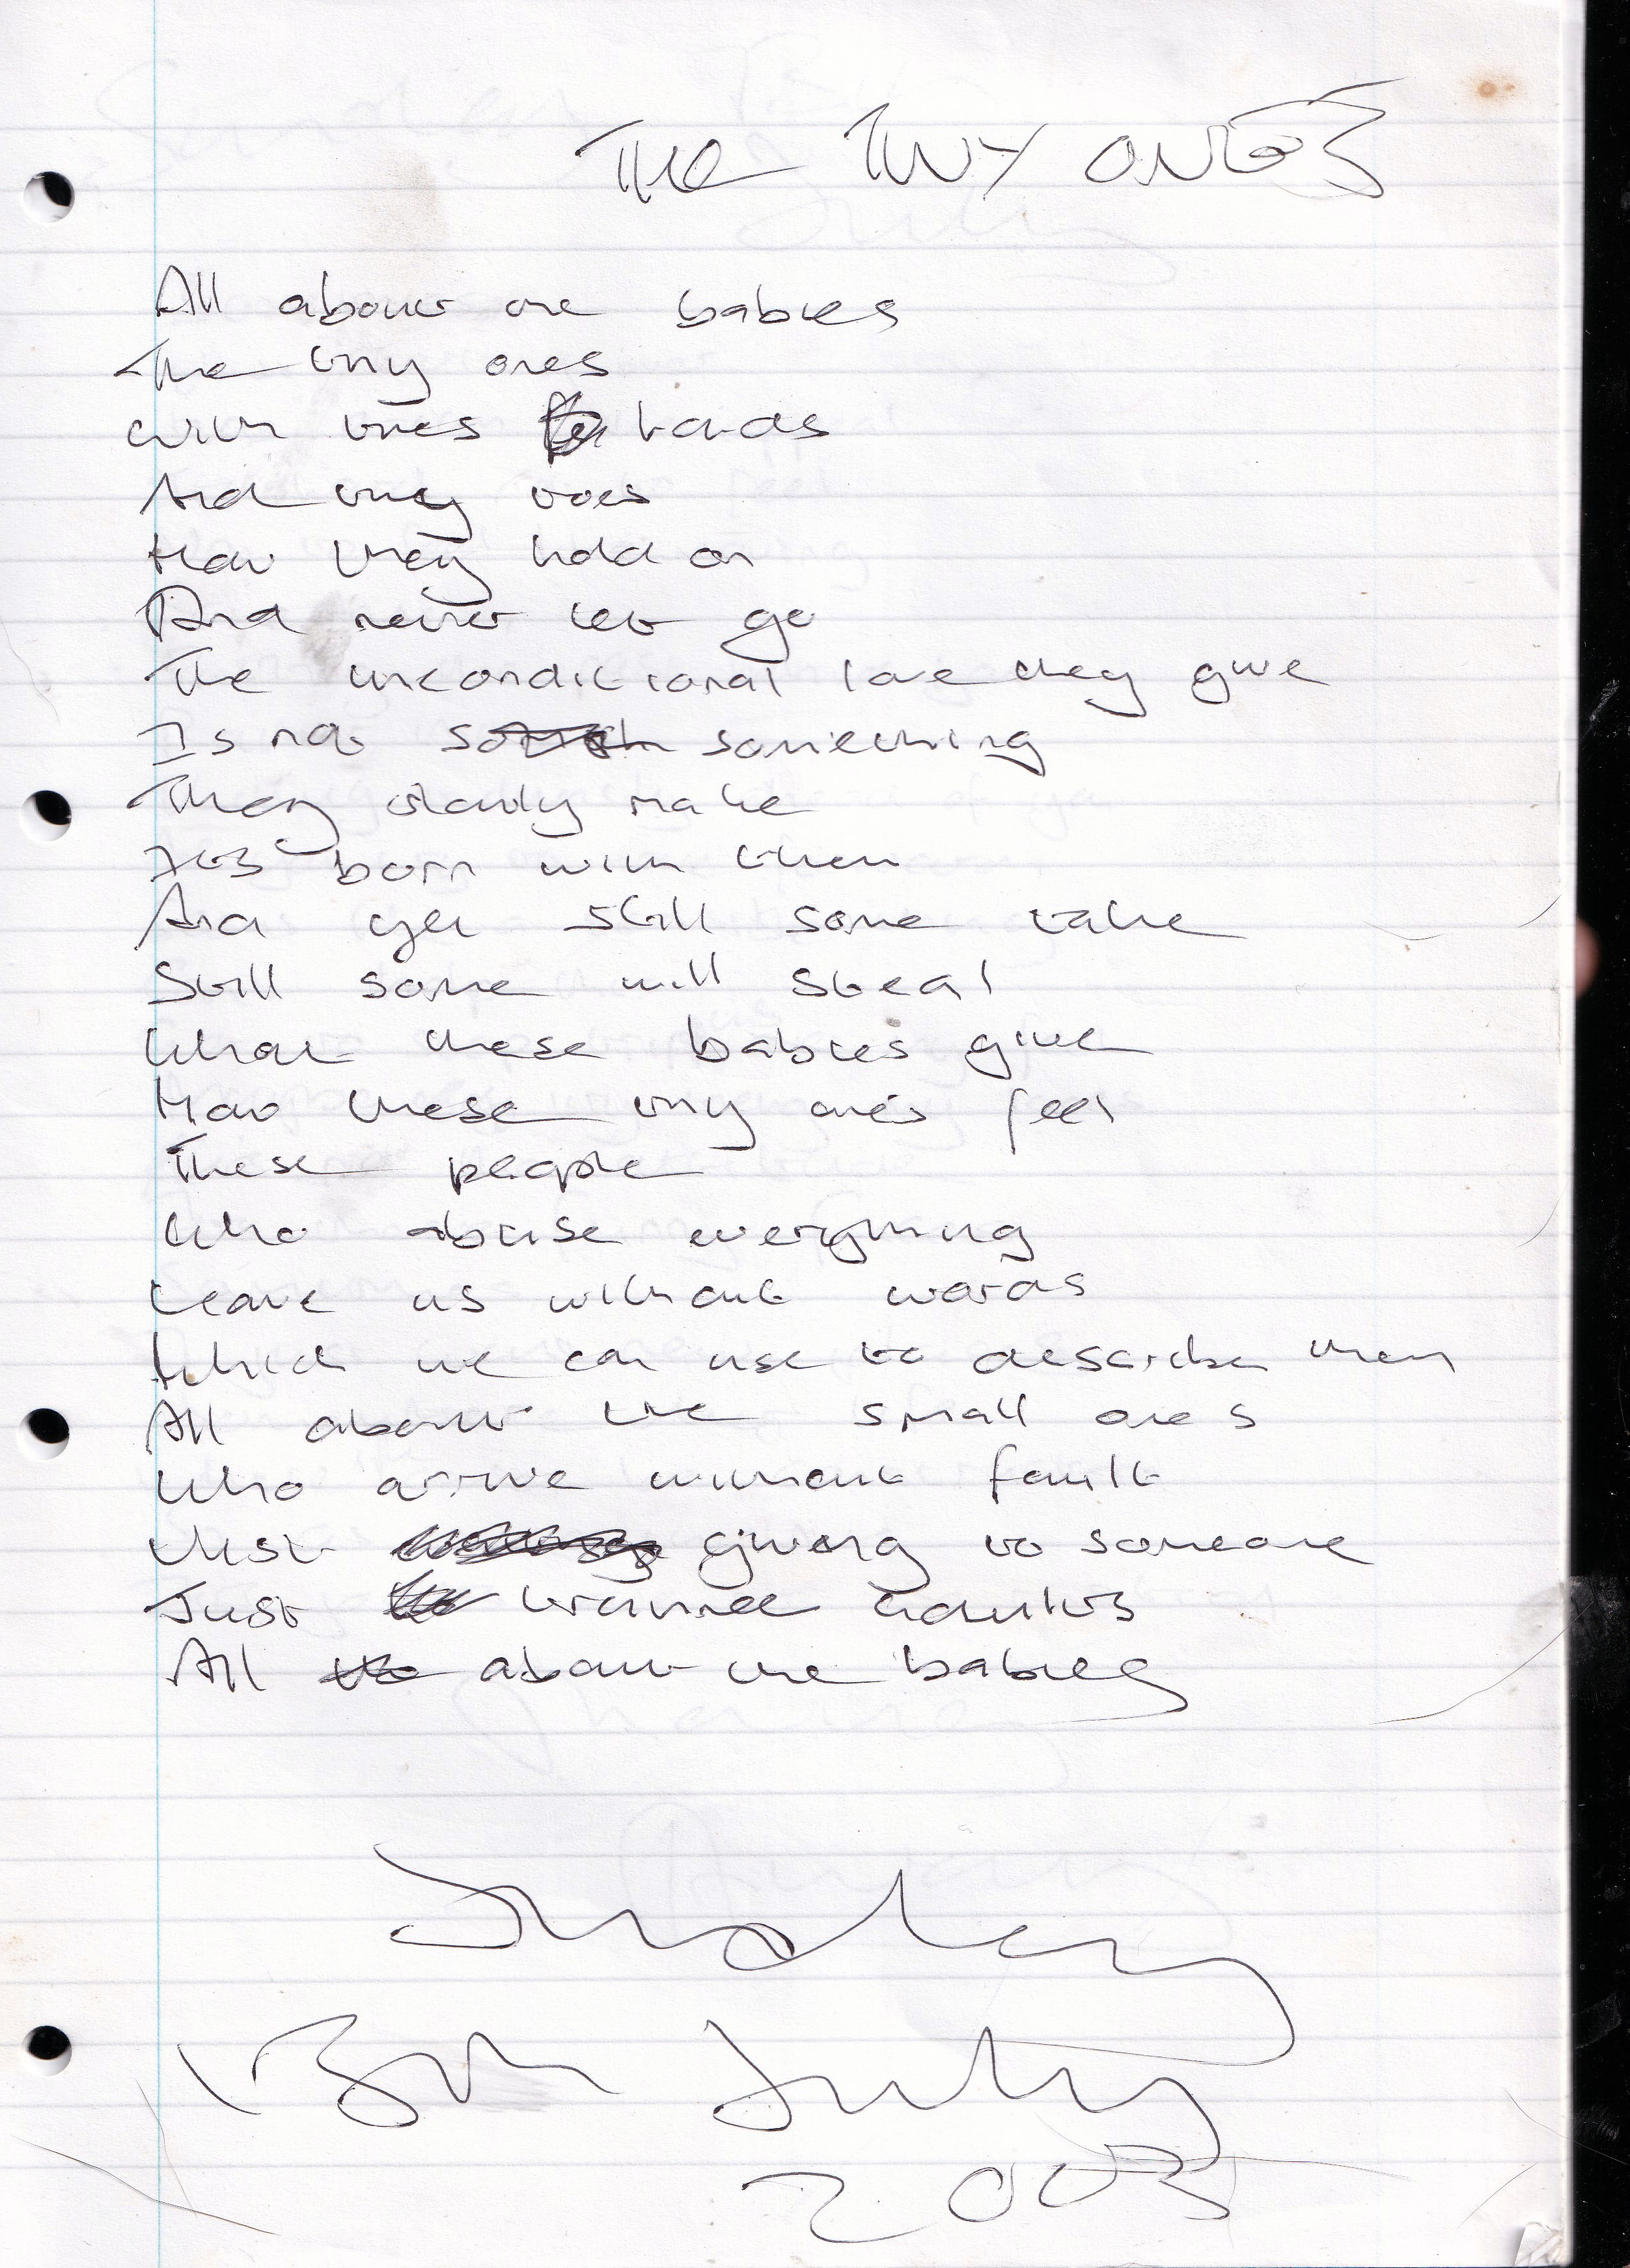 THE TINY ONES
All about the babies
The tiny ones
With tiny hands
And tiny toes
How they hold on
And never let go
The unconditional love they give
Is not something
They slowly make
Its born with them
And yet still some take
Still some will steal
What these babies give
How these tiny ones feel
These people
Who abuse everything
Leave us without words
Which we can use to describe them
All about the small ones
Who arrive without fault
Just giving to someone
Just
All about the babies
13th July
2005